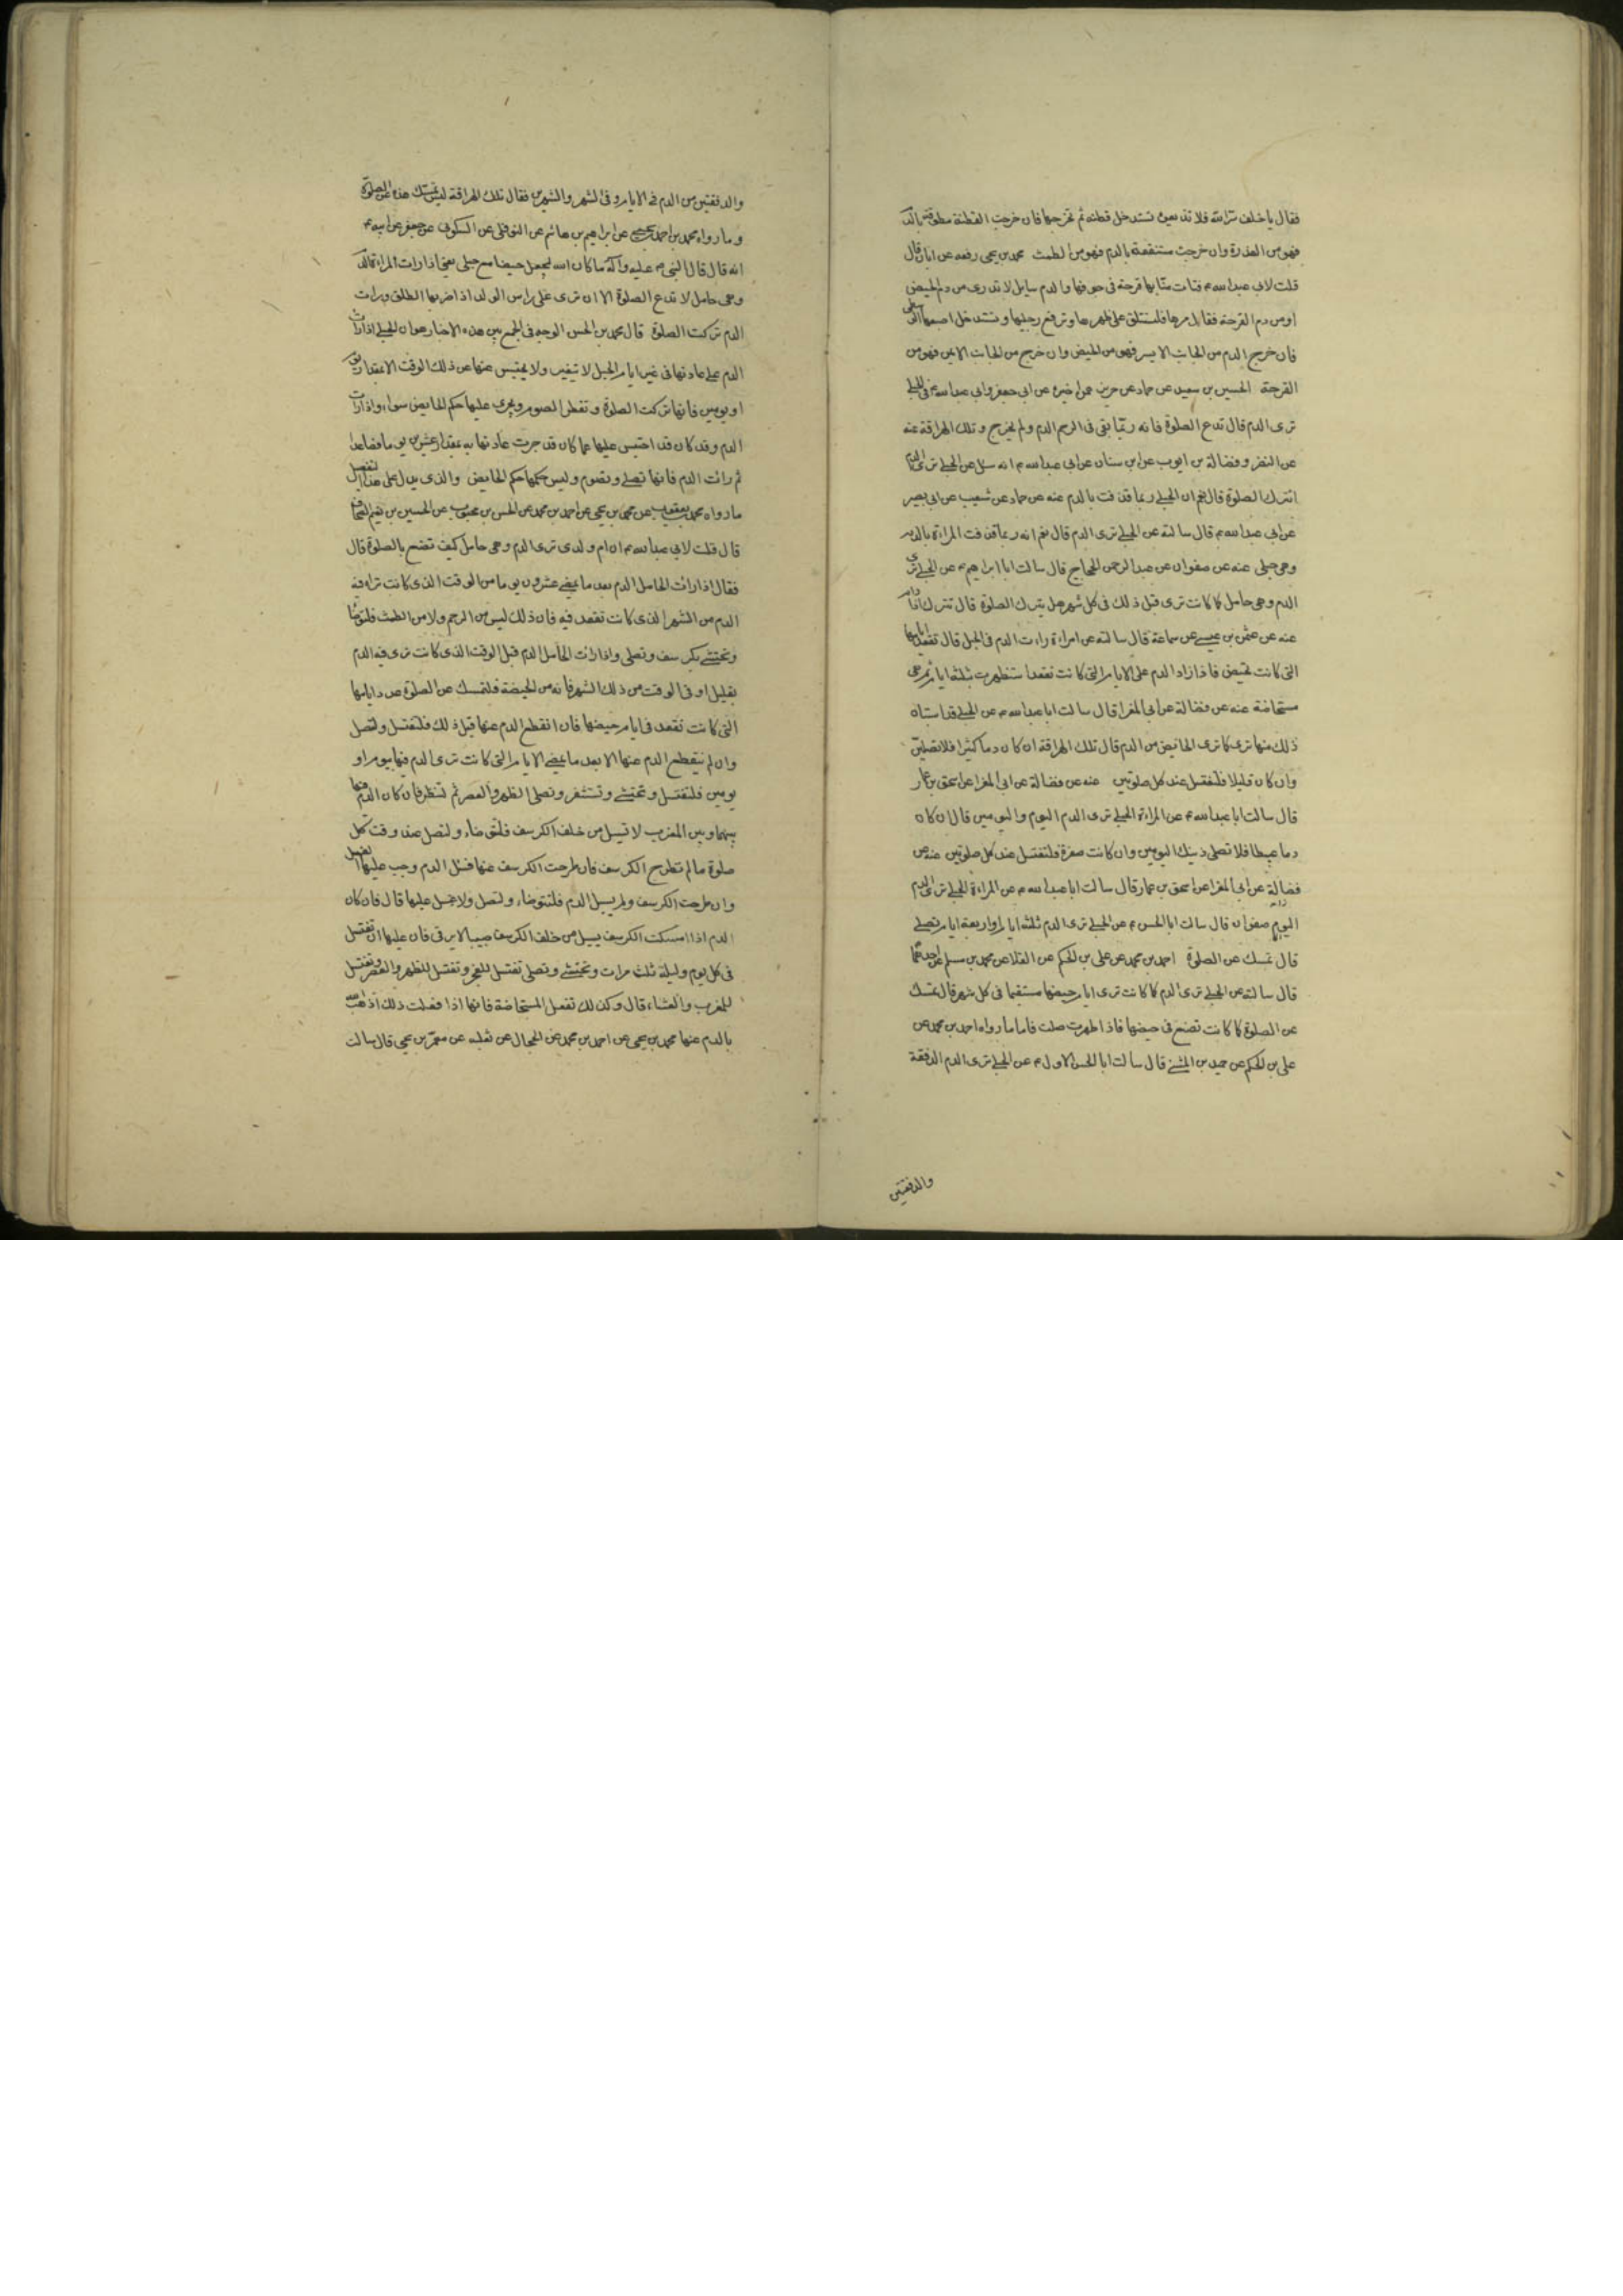 فقال يا خلف سر الله فلا تذيعوه تستدخل قطنه ثم تخرجها فان خرجت القطنة مطوقة بالدم
فهو من العذرة وان خرجت مستنقعة بالدم فهو من الطمث محمد بن يحيى رفعه عن ابان قال
قلت لابي عبد الله ع فتاة منا بها قرحة في جوفها والدم سايل لا تدرى من دم الحيض
او من دم القرحة فقال مرها فلتستلق على ظهرها وترفع رجليها وتستدخل اصبعها الوسطى
فان خرج الدم من الجانب الايسر فهو من الحيض وان خرج من الجانب الايمن فهو من
القرحة الحسين بن سعيد عن حماد عن حريز عمن اخبره عن ابي جعفر وابي عبد الله ع في الحبلى
ترى الدم قال تدع الصلوة فانه ربما بقى في الرحم الدم ولم يخرج وتلك الهراقة عنه
عن النضر وفضالة بن ايوب عن ابن سنان عن ابي عبد الله ع انه سئل عن الحبلى ترى الدم
اتترك الصلوة قال نعم ان الحبلى ربما قذفت بالدم عنه عن حماد عن شعيب عن ابي بصير
عن ابي عبد الله ع قال سالته عن الحبلى ترى الدم قال نعم انه ربما قذفت المراة بالدم
وهي حبلى عنه عن صفوان عن عبد الرحمن الحجاج قال سالت ابا ابراهيم ع عن الحبلى ترى
الدم وهي حامل كما كانت ترى قبل ذلك في كل شهر هل يترك الصلوة قال تترك اذا دام
عنه عن عثمن بن عيسى عن سماعة قال سالته عن امراة رات الدم في الحبل قال تقعد ايامها
التي كانت تحيض فاذا زاد الدم على الايام التي كانت تقعد استظهرت بثلثة ايام ثم هي
مستحاضة عنه عن فضالة عن ابي المغرا قال سالت ابا عبد الله ع عن الحبلى قد استبان
ذلك منها ترى كما ترى الحايض من الدم قال تلك الهراقة ان كان دما كثيرا فلا تصلين
وان كان قليلا فلتغتسل عند كل صلوتين عنه عن فضالة عن ابي المغرا عن اسحق بن عمار
قال سالت ابا عبد الله ع عن المراة الحبلى ترى الدم اليوم واليومين قال ان كان
دما عبيطا فلا تصلى ذينك اليومين وان كانت صفرة فلتغتسل عند كل صلوتين عنه عن
فضالة عن ابي المغرا عن اسحق بن عمار قال سالت ابا عبد الله ع عن المراة الحبلى ترى الدم
اليوم صفوان قال سالت ابا الحسن ع عن الحبلى ترى الدم ثلثة ايام او اربعة ايام تصلى
قال تمسك عن الصلوة احمد بن محمد عن علي بن الحكم عن العلا عن محمد بن مسلم عن احدهما
قال سالته عن الحبلى ترى الدم كما كانت ترى ايام حيضها مستقيما في كل شهر قال تمسك
عن الصلوة كما كانت تصنع في حيضها فاذا طهرت صلت فاما ما رواه احمد بن محمد عن
علي بن الحكم عن حميد بن المثنى قال سالت ابا الحسن الاول ع عن الحبلى ترى الدم الدفقة
والدفقتين
والدفقتين من الدم في الايام وفي الشهر والشهرين فقال تلك الهراقة ليس تمسك هذه عن الصلوة
وما رواه محمد بن احمد بن يحيى عن ابراهيم بن هاشم عن النوفلي عن السكوني عن جعفر عن ابيه ع
انه قال قال النبي ص عليه وآله ما كان الله ليجعل حيضا مع حبلى يعني اذا رات المراة الدم
وهي حامل لا تدع الصلوة الا ان ترى على راس الولد اذا ضربها الطلق ورات
الدم تركت الصلوة قال محمد بن الحسن الوجه في الجمع بين هذه الاخبار هو ان الحبلى اذا رات
الدم على عادتها في غير ايام الحبل لا يتغير ولا يحتبس عنها عن ذلك الوقت الا بمقدار يوم
او يومين فانها تركت الصلوة وتفطر الصوم ويجرى عليها حكم الحايض سواء واذا رات
الدم وقد كان قد احتبس عليها عما كان قد جرت عادتها به بمقدار عشرين يوما فصاعدا
ثم رات الدم فانها تصلى وتصوم وليس حكمها حكم الحايض والذي يدل على هذا التفصيل
ما رواه محمد بن يعقوب عن محمد بن يحيى عن احمد بن محمد عن الحسن بن محبوب عن الحسين بن نعيم الصحاف
قال قلت لابي عبد الله ع ان ام ولدى ترى الدم وهي حامل كيف تصنع بالصلوة قال
فقال اذا رات الحامل الدم بعد ما يمضي عشرون يوما من الوقت الذي كانت تراه فيه
الدم من الشهر الذي كانت تقعد فيه فان ذلك ليس من الرحم ولا من الطمث فلتوضا
وتحتشي بكرسف وتصلى واذا رات الحامل الدم قبل الوقت الذي كانت ترى فيه الدم
بقليل او في الوقت من ذلك الشهر فانه من الحيضة فلتمسك عن الصلوة عدد ايامها
التي كانت تقعد في ايام حيضها فان انقطع الدم عنها قبل ذلك فلتغتسل ولتصل
وان لم ينقطع الدم عنها الا بعد ما يمضي الايام التي كانت ترى الدم فيها بيوم او
يومين فلتغتسل وتحتشي وتستثفر وتصلى الظهر والعصر ثم لتنظر فان كان الدم فيما
بينها وبين المغرب لا تسيل من خلف الكرسف فلتوضاء ولتصل عند وقت كل
صلوة ما لم تطرح الكرسف فان طرحت الكرسف عنها فسال الدم وجب عليها الغسل
وان طرحت الكرسف ولم يسيل الدم فلتتوضاء ولتصل ولا غسل عليها قال فان كان
الدم اذا امسكت الكرسف يسيل من خلف الكرسف صبيبا لا يرقى فان عليها ان تغتسل
في كل يوم وليلة ثلث مرات وتحتشي وتصلى تغتسل للفجر وتغتسل للظهر والعصر وتغتسل
للمغرب والعشاء قال وكذلك تفعل المستحاضة فانها اذا فعلت ذلك اذهب الله
بالدم عنها محمد بن يحيى عن احمد بن محمد عن الحجال عن ثعلبه عن معمر بن يحيى قال سالت